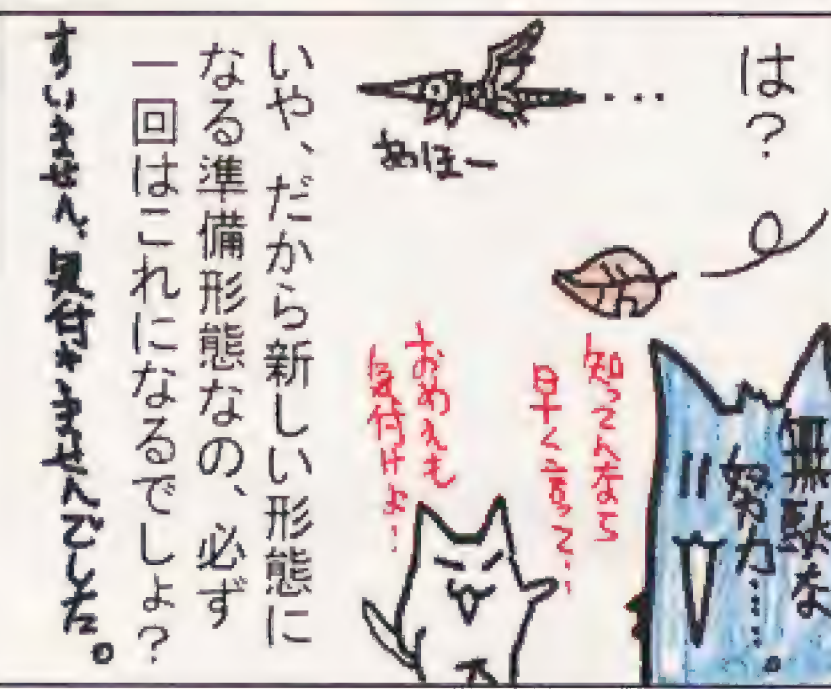 は?
無駄な
努力……。
知ってんなら
早く言って…
…
あほー
おめえも
気付けよ!
いや、だから新しい形態に
なる準備形態なの、必ず
一回はこれになるでしょ?
すいません、気付きませんでした。